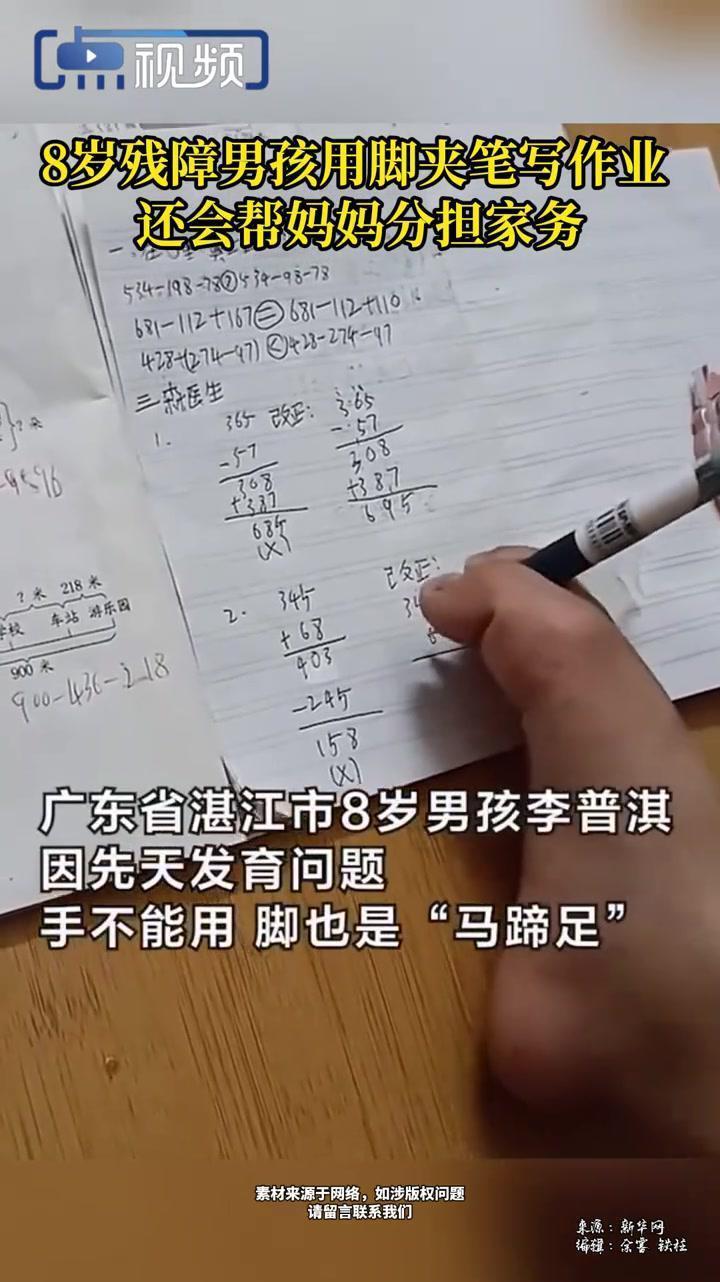 点视频
8岁残障男孩用脚夹笔写作业
还会帮妈妈分担家务
534-198-78 534-98-78
681-112+167 = 681-112+110
428-(274-97) < 428-274-97
三 森林医生
1. 365 改正: 365
-57 -57
308 308
+387 +387
685 695
(X)
2. 345 改正:
+68
403
-245
158
(X)
? 米 218 米
学校 车站 游乐园
900 米
900-436-218
广东省湛江市8岁男孩李普淇
因先天发育问题
手不能用 脚也是“马蹄足”
素材来源于网络，如涉版权问题
请留言联系我们
来源：新华网
编辑：余雾 铁柱